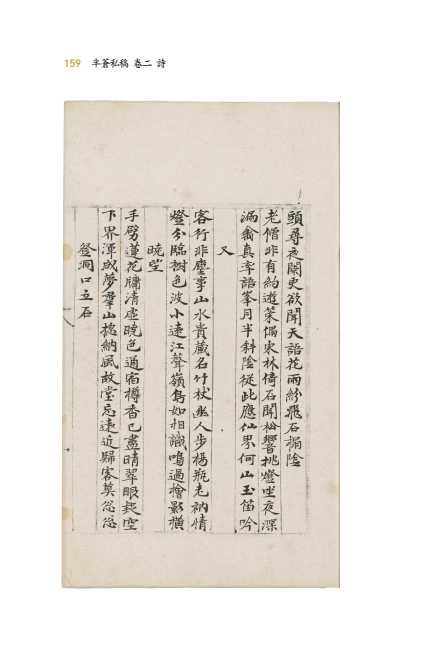 159 半蒼私稿 卷二 詩
頭尋夜闌更欲聞天語花雨紛飛石榻陰
老僧非有約遊策偶東林倚石聞松響挑燈坐夜深
漏禽真率語峯月半斜陰從此應仙界何山玉笛吟
又
客行非塵事山水貴藏名竹杖幽人步楊瓶老衲情
燈分臨樹色波小遠江聲嶺鳥如相識鳴過檜影橫
曉望
手劈蓮花牖清虛曉色通宿樽香已盡晴翠眼起空
下界渾成夢羣山摠納風故堂忘遠近歸客莫怱怱
登洞口立石